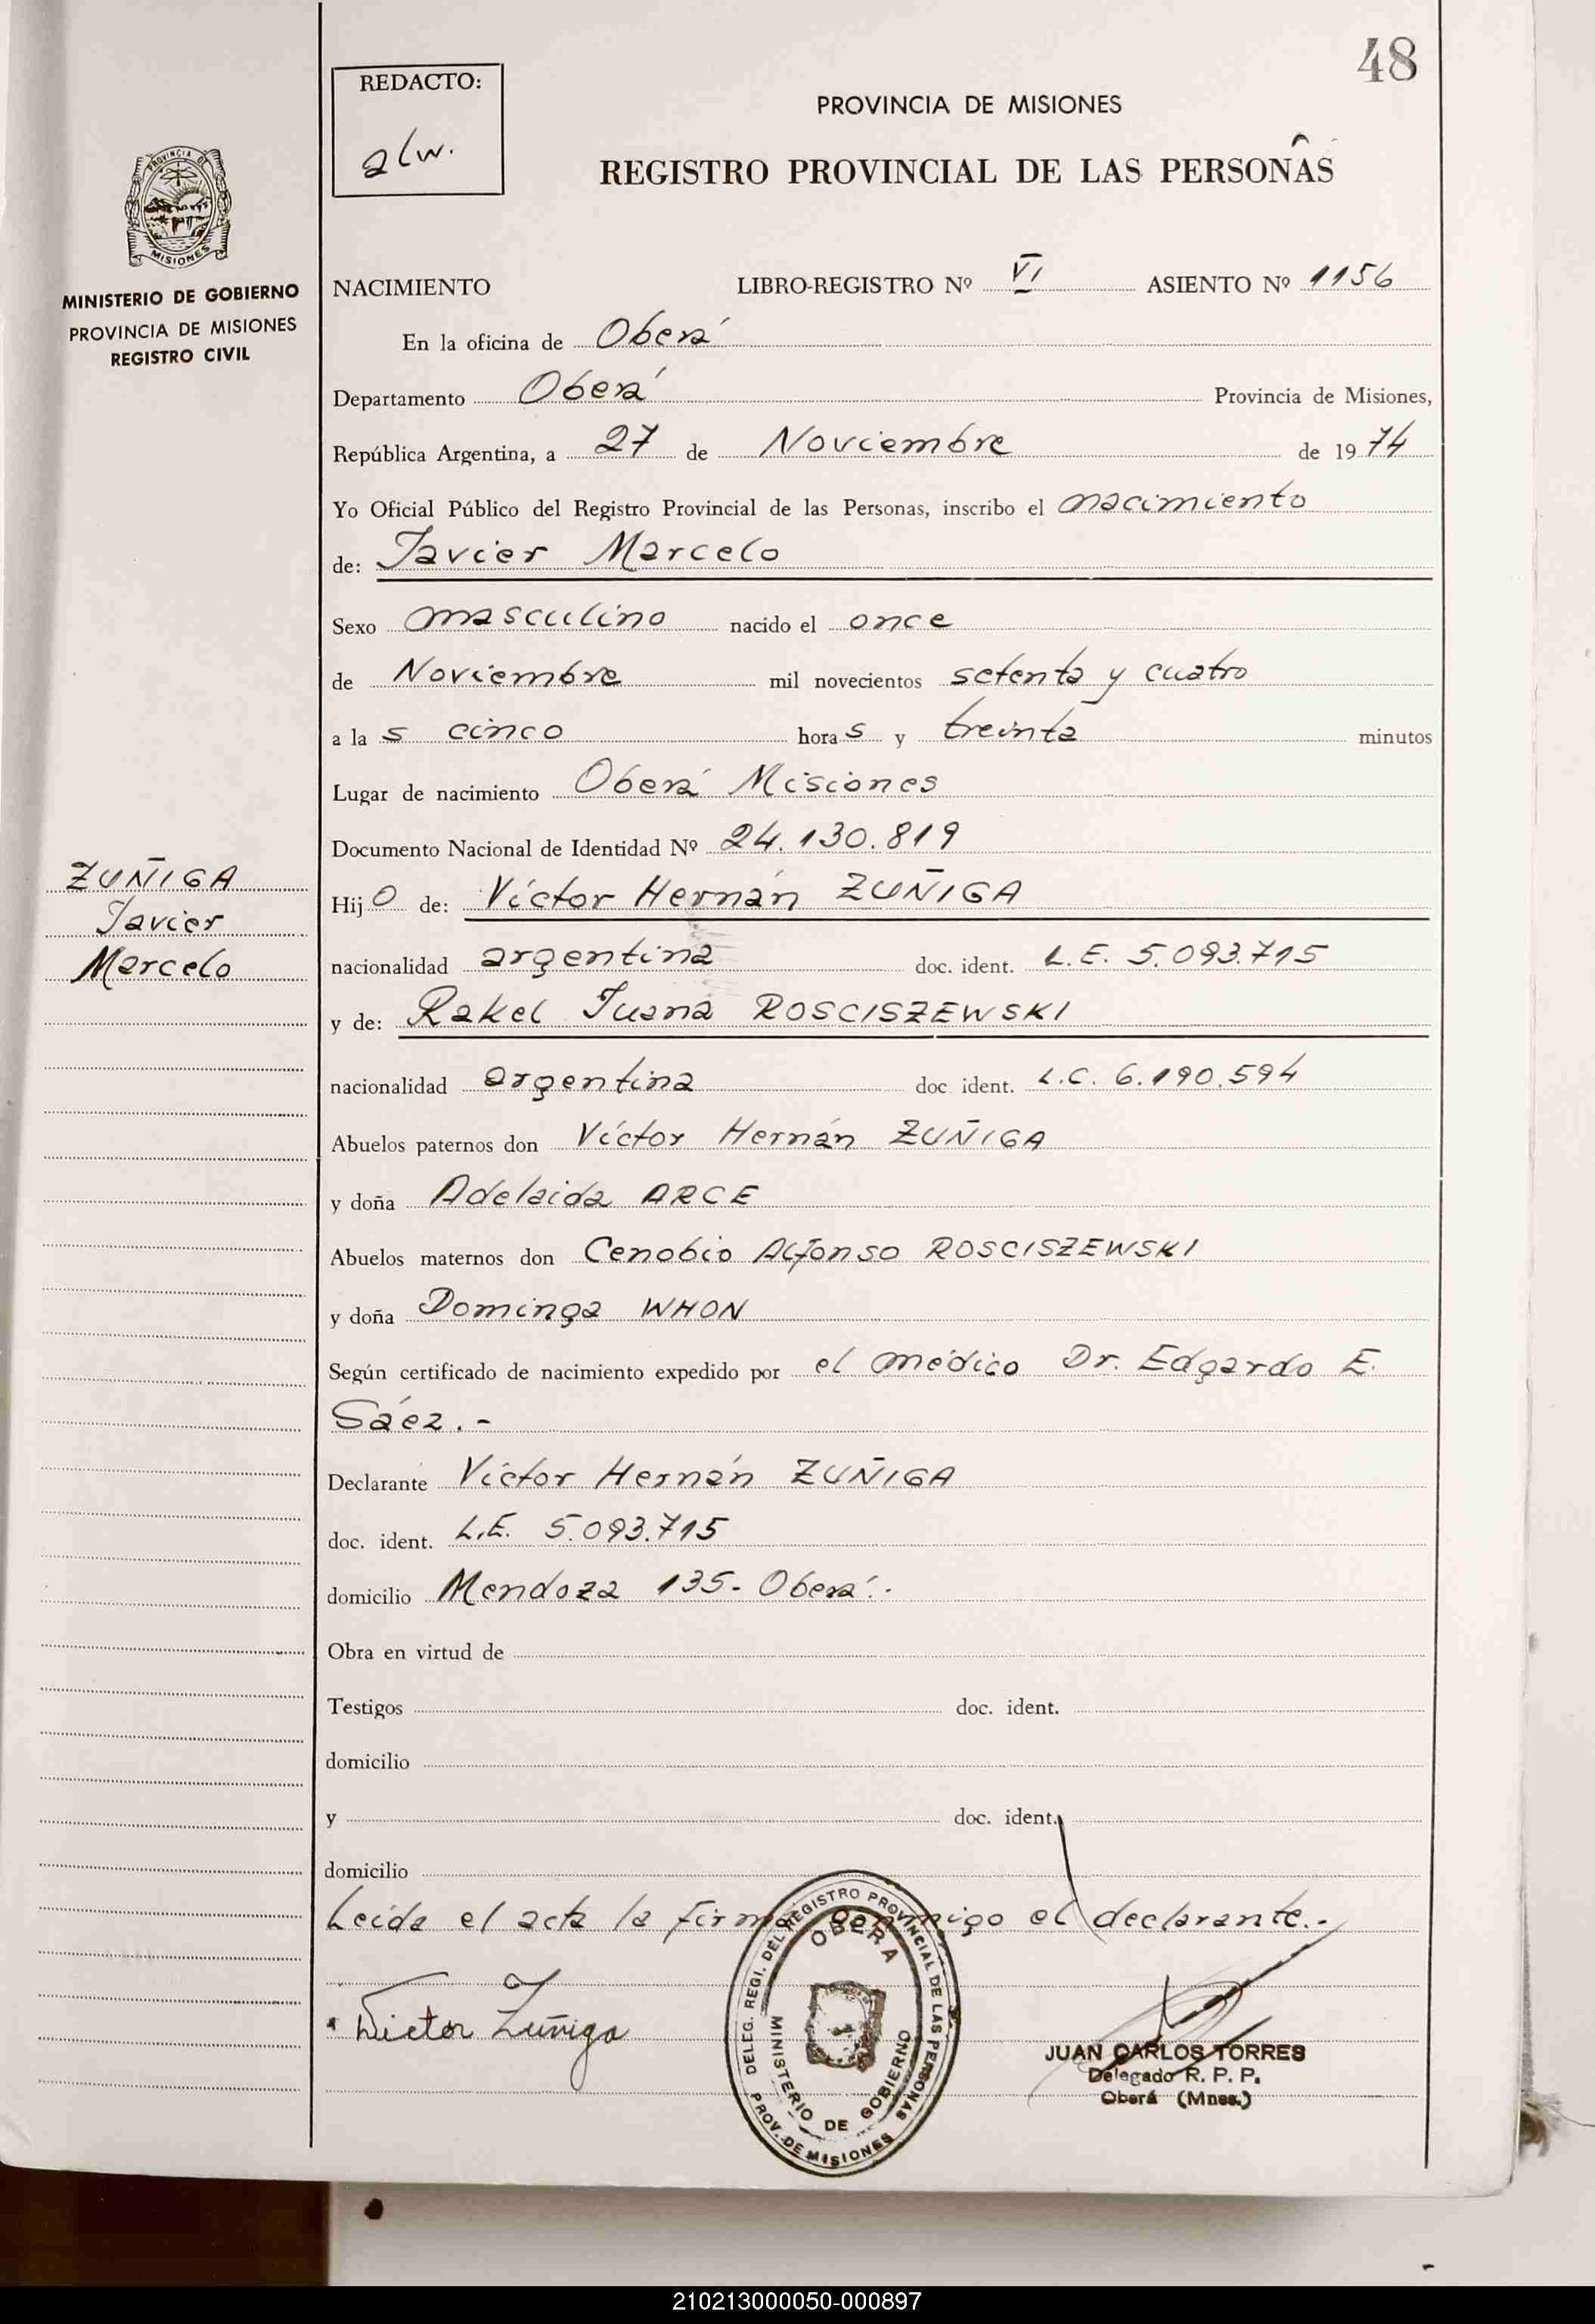 48
REDACTO:
alw.
PROVINCIA DE MISIONES
REGISTRO PROVINCIAL DE LAS PERSONAS
PROVINCIA DE
MISIONES
MINISTERIO DE GOBIERNO
PROVINCIA DE MISIONES
REGISTRO CIVIL
NACIMIENTO LIBRO-REGISTRO Nº VI ASIENTO Nº 1156
En la oficina de Oberá
Departamento Oberá Provincia de Misiones,
República Argentina, a 27 de Noviembre de 1974
Yo Oficial Público del Registro Provincial de las Personas, inscribo el nacimiento
de: Javier Marcelo
Sexo masculino nacido el once
de Noviembre mil novecientos setenta y cuatro
a la s cinco hora s y treinta minutos
Lugar de nacimiento Oberá Misiones
Documento Nacional de Identidad Nº 24.130.819
ZUÑIGA
Javier
Marcelo
Hijo de: Víctor Hernán ZUÑIGA
nacionalidad argentina doc. ident. L.E. 5.093.715
y de: Rakel Juana ROSCISZEWSKI
nacionalidad argentina doc. ident. L.C. 6.190.594
Abuelos paternos don Víctor Hernán ZUÑIGA
y doña Adelaida ARCE
Abuelos maternos don Cenobio Alfonso ROSCISZEWSKI
y doña Dominga WHON
Según certificado de nacimiento expedido por el médico Dr. Edgardo E.
Sáez.-
Declarante Víctor Hernán ZUÑIGA
doc. ident. L.E. 5.093.715
domicilio Mendoza 135- Oberá.-
Obra en virtud de
Testigos doc. ident.
domicilio
y doc. ident.
domicilio
Leída el acta la firma conmigo el declarante.-
Victor Zuñiga
DELEG. REGI. DEL REGISTRO PROVINCIAL DE LAS PERSONAS
OBERA
MINISTERIO DE GOBIERNO
PROV. DE MISIONES
JUAN CARLOS TORRES
Delegado R. P. P.
Oberá (Mnes.)
210213000050-000897